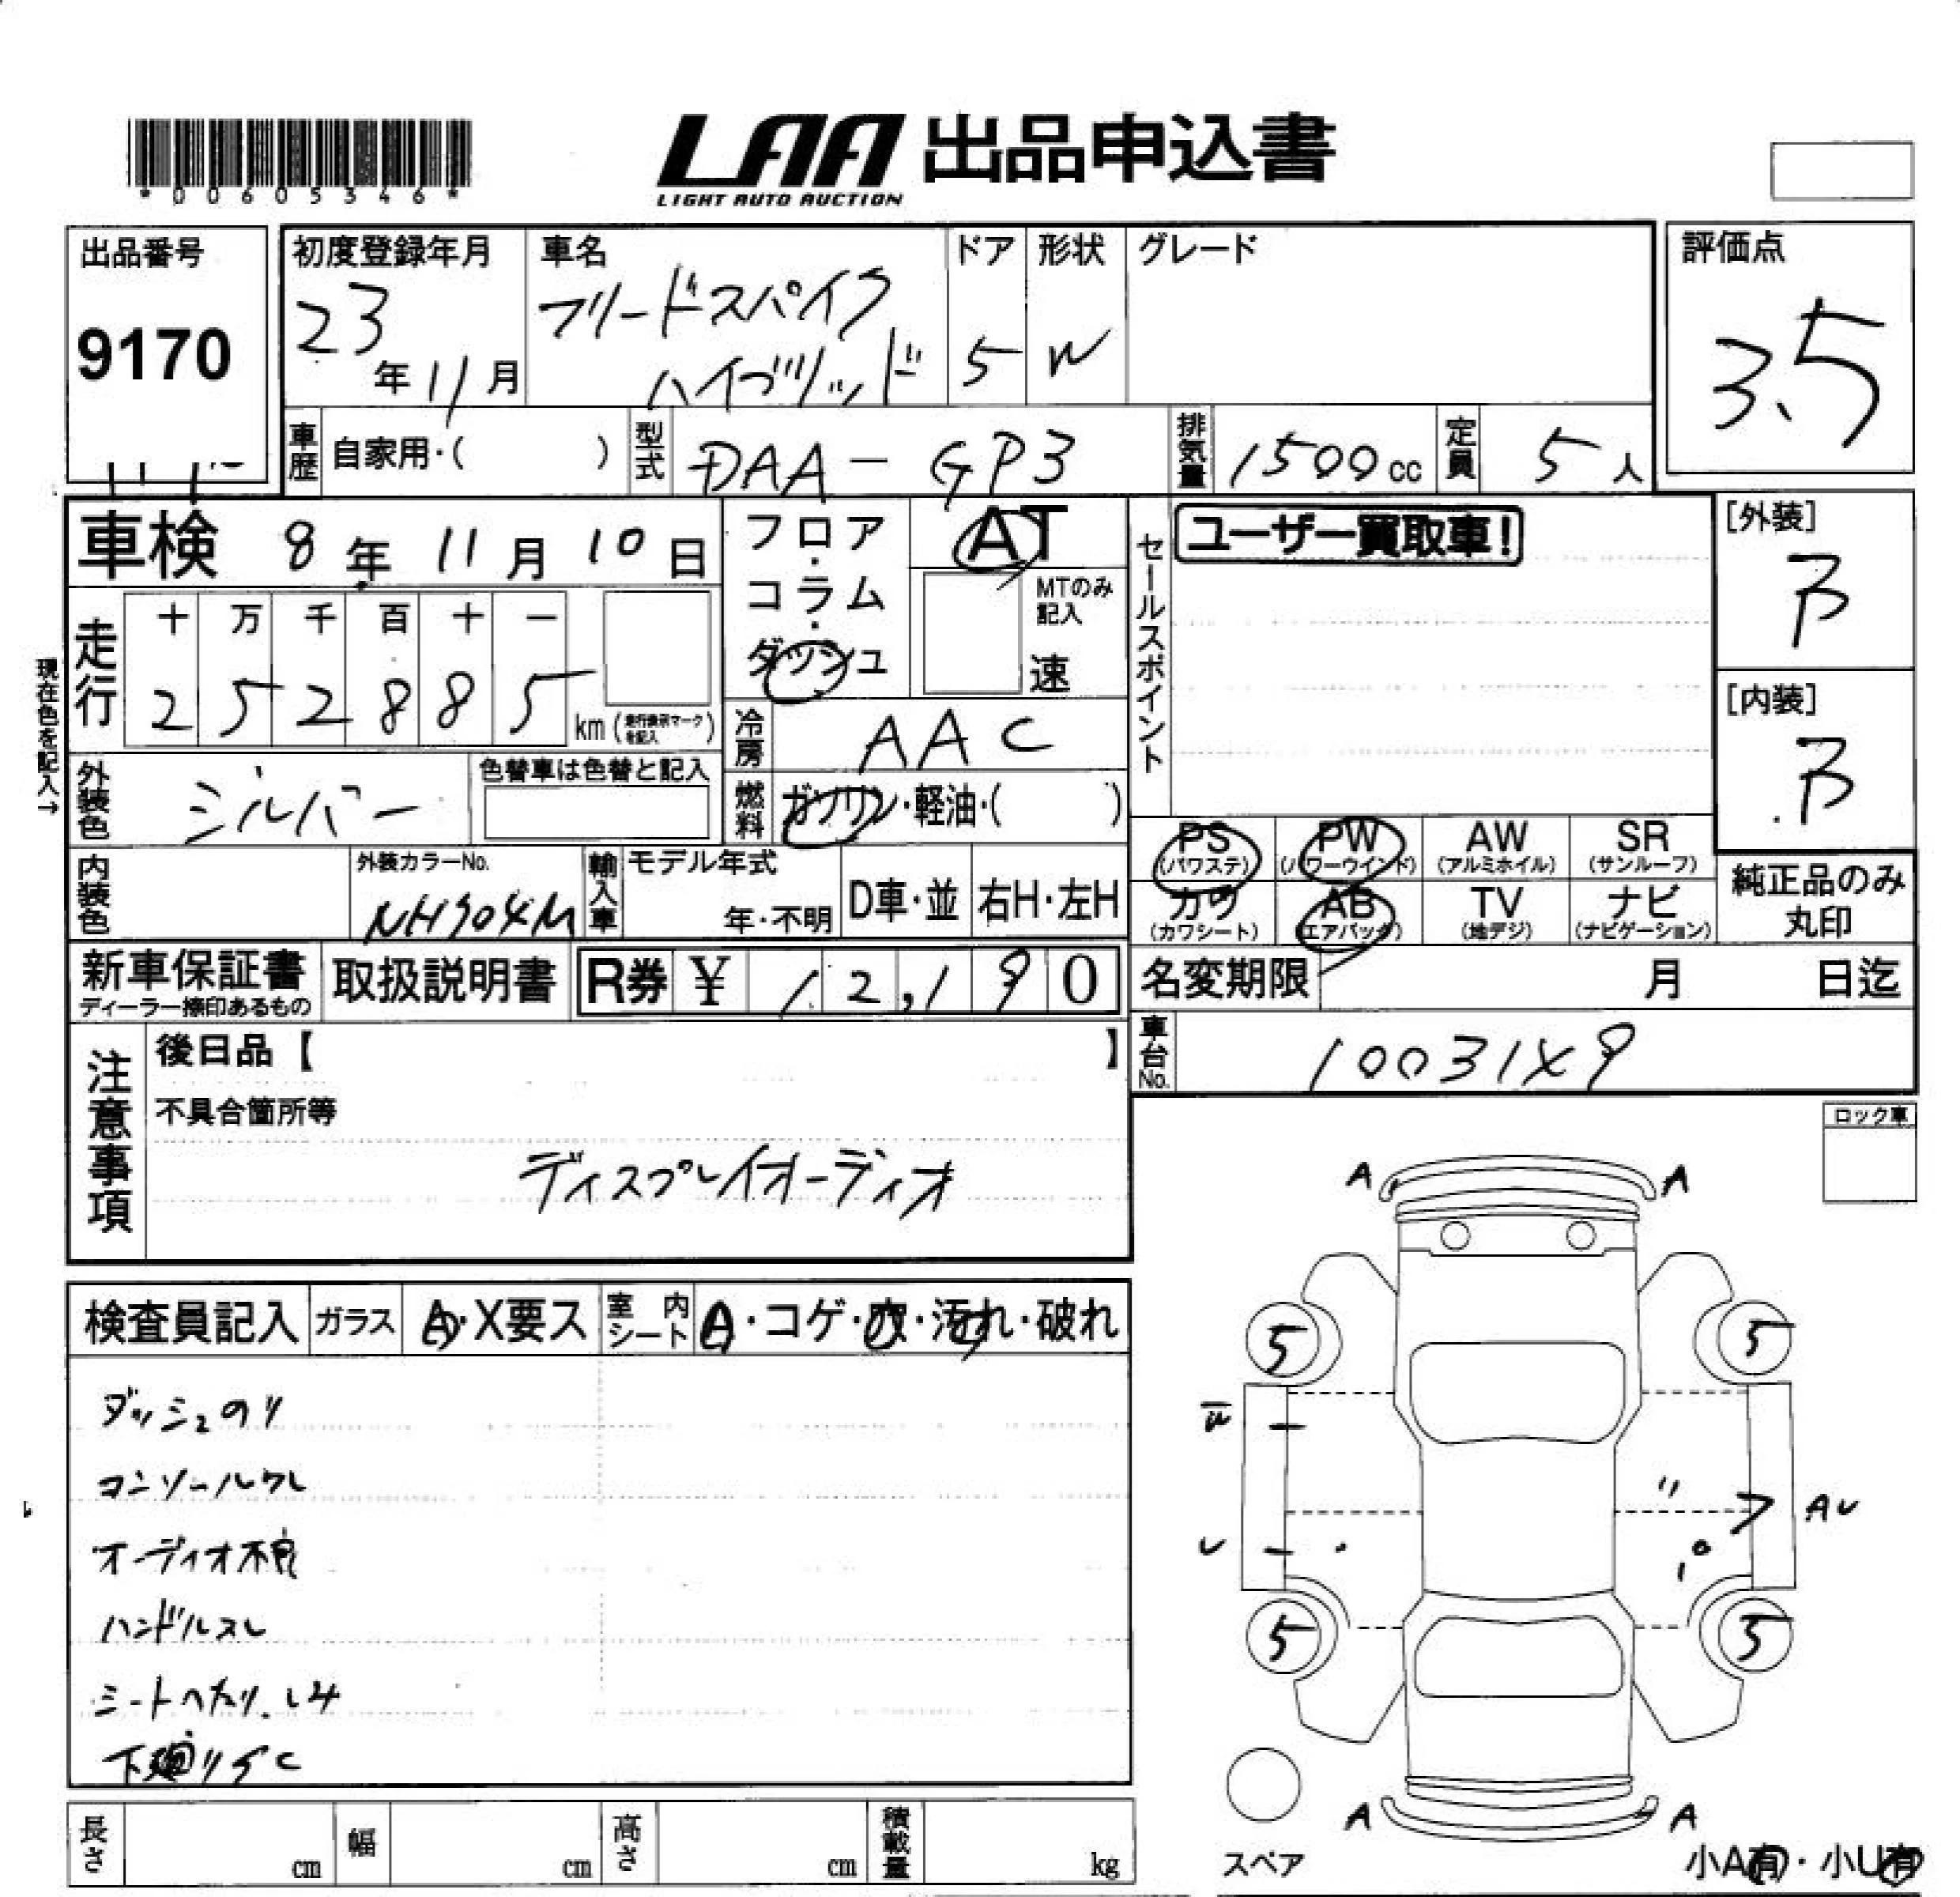 *00605346*
LAA 出品申込書
LIGHT AUTO AUCTION
出品番号
9170
初度登録年月
23年11月
車名
フリードスパイク
ハイブリッド
ドア
5
形状
W
グレード
評価点
3.5
車歴 自家用・( )
型式 DAA-GP3
排気量 1500cc
定員 5人
車検 8年11月10日
フロア・コラム・ダッシュ
AT
MTのみ記入
速
セールスポイント
ユーザー買取車!
[外装]
B
[内装]
B
現在色を記入→
走行
十 万 千 百 十 一
2 5 2 8 8 5 km (走行表示マークを記入)
冷房 AAC
外装色 シルバー
色替車は色替と記入
燃料 ガソリン・軽油・( )
PS (パワステ)
PW (パワーウインド)
AW (アルミホイル)
SR (サンルーフ)
カワ (カワシート)
AB (エアバッグ)
TV (地デジ)
ナビ (ナビゲーション)
純正品のみ丸印
内装色
外装カラーNo.
NH704M
輸入車
モデル年式
年・不明
D車・並
右H・左H
新車保証書
ディーラー捺印あるもの
取扱説明書
R券 ¥ 12,190
名変期限 月 日迄
車台No. 10031X9
注意事項
後日品【 】
不具合箇所等
ディスプレイオーディオ
ロック車
検査員記入
ガラス A・X要ス
室内シート A・コゲ・穴・汚れ・破れ
ダッシュのリ
コンソールワレ
オーディオ不良
ハンドルスレ
シートヘタリ、シミ
下廻りサC
A A
5 5
W
U
AU
5 5
A A
スペア
小A有・小U有
長さ cm
幅 cm
高さ cm
積載量 kg